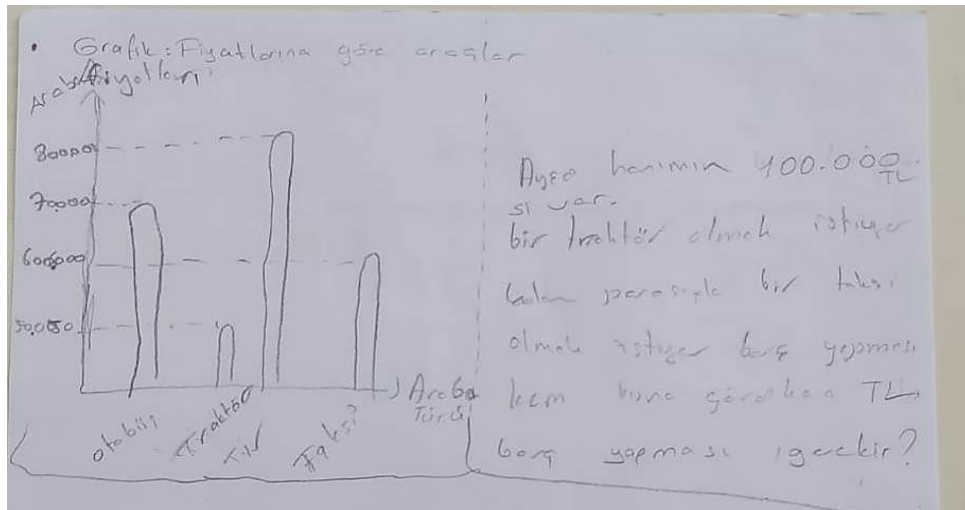 • Grafik: Fiyatlarına göre araçlar
Araba fiyatları
80000
70.000
600000
50.000
otobüs
Traktör
Tır
Taksi
Araba
Türü
Ayşe hanımın 400.000
TL
si var.
bir traktör almak istiyor
kalan parasıyla bir taksi
almak istiyor borç yapması
buna göre TL
borç yapması gerekir?